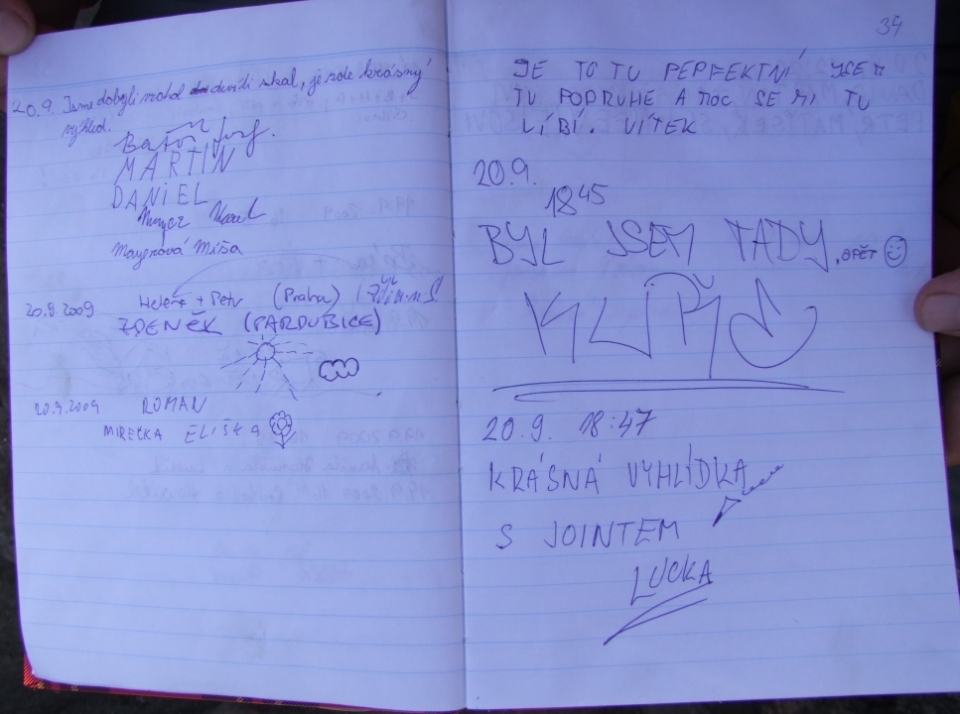 20.9. Jsme dobyli vrchol skal, je zde krásný
výhled.
MARTIN
DANIEL
Karel
Mayerová Míša
20.9.2009 Helena + Petr (Praha)
ZDENĚK (PARDUBICE)
20.9.2009 ROMAN
MIREČKA ELIŠKA
34
JE TO TU PERFEKTNÍ JSEM
TU PODRUHE A MOC SE MI TU
LÍBÍ. VÍTEK
20.9.
18 45
BYL JSEM TADY, OPĚT
20.9. 18:47
KRÁSNÁ VYHLÍDKA
S JOINTEM
LUCKA